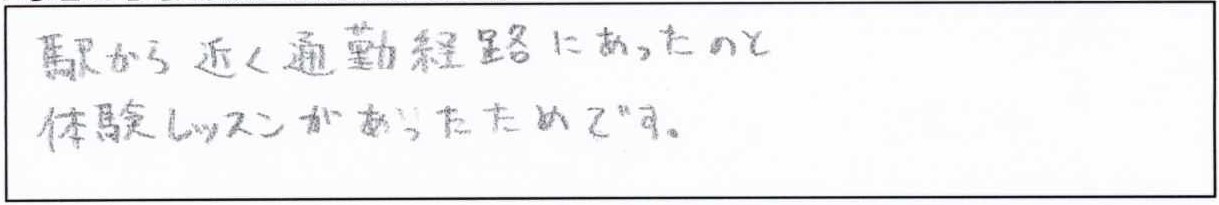 駅から近く通勤経路にあったのと
体験レッスンがあったためです。